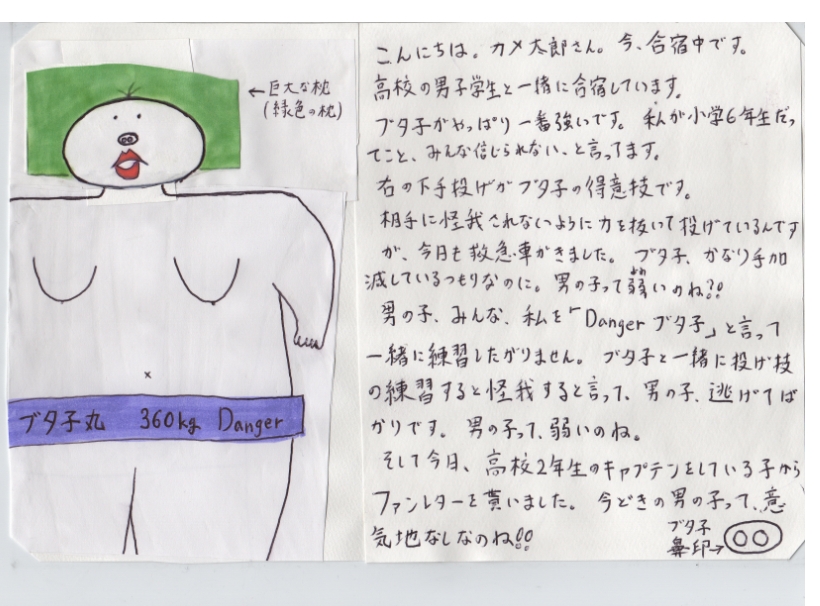 ←巨大な枕
(緑色の枕)
ブタ子丸 360kg Danger
こんにちは。カメ太郎さん。今、合宿中です。
高校の男子学生と一緒に合宿しています。
ブタ子がやっぱり一番強いです。私が小学6年生だっ
てこと、みんな信じられない、と言ってます。
右の下手投げがブタ子の得意技です。
相手に怪我されないように力を抜いて投げているんです
が、今日も救急車がきました。ブタ子、かなり手加
減しているつもりなのに。男の子って弱いのね?!
男の子、みんな、私を「Danger ブタ子」と言って
一緒に練習したがりません。ブタ子と一緒に投げ技
の練習すると怪我すると言って、男の子、逃げてば
かりです。男の子って、弱いのね。
そして今日、高校2年生のキャプテンをしている子から
ファンレターを貰いました。今どきの男の子って、意
気地なしなのね!!
ブタ子
鼻印→